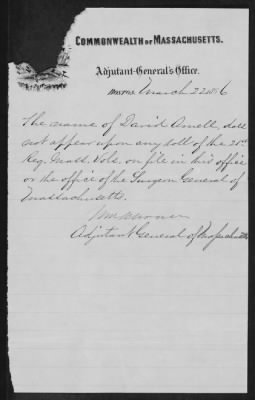 COMMONWEALTH OF MASSACHUSETTS.
Adjutant-General's Office.
BOSTON, March 22 1886
The name of David Amell, does
not appear upon any roll of the 20th
Reg. Mass. Vols. on file in this office
or the office of the Surgeon General of
Massachusetts.
Adjutant General of Massachusetts